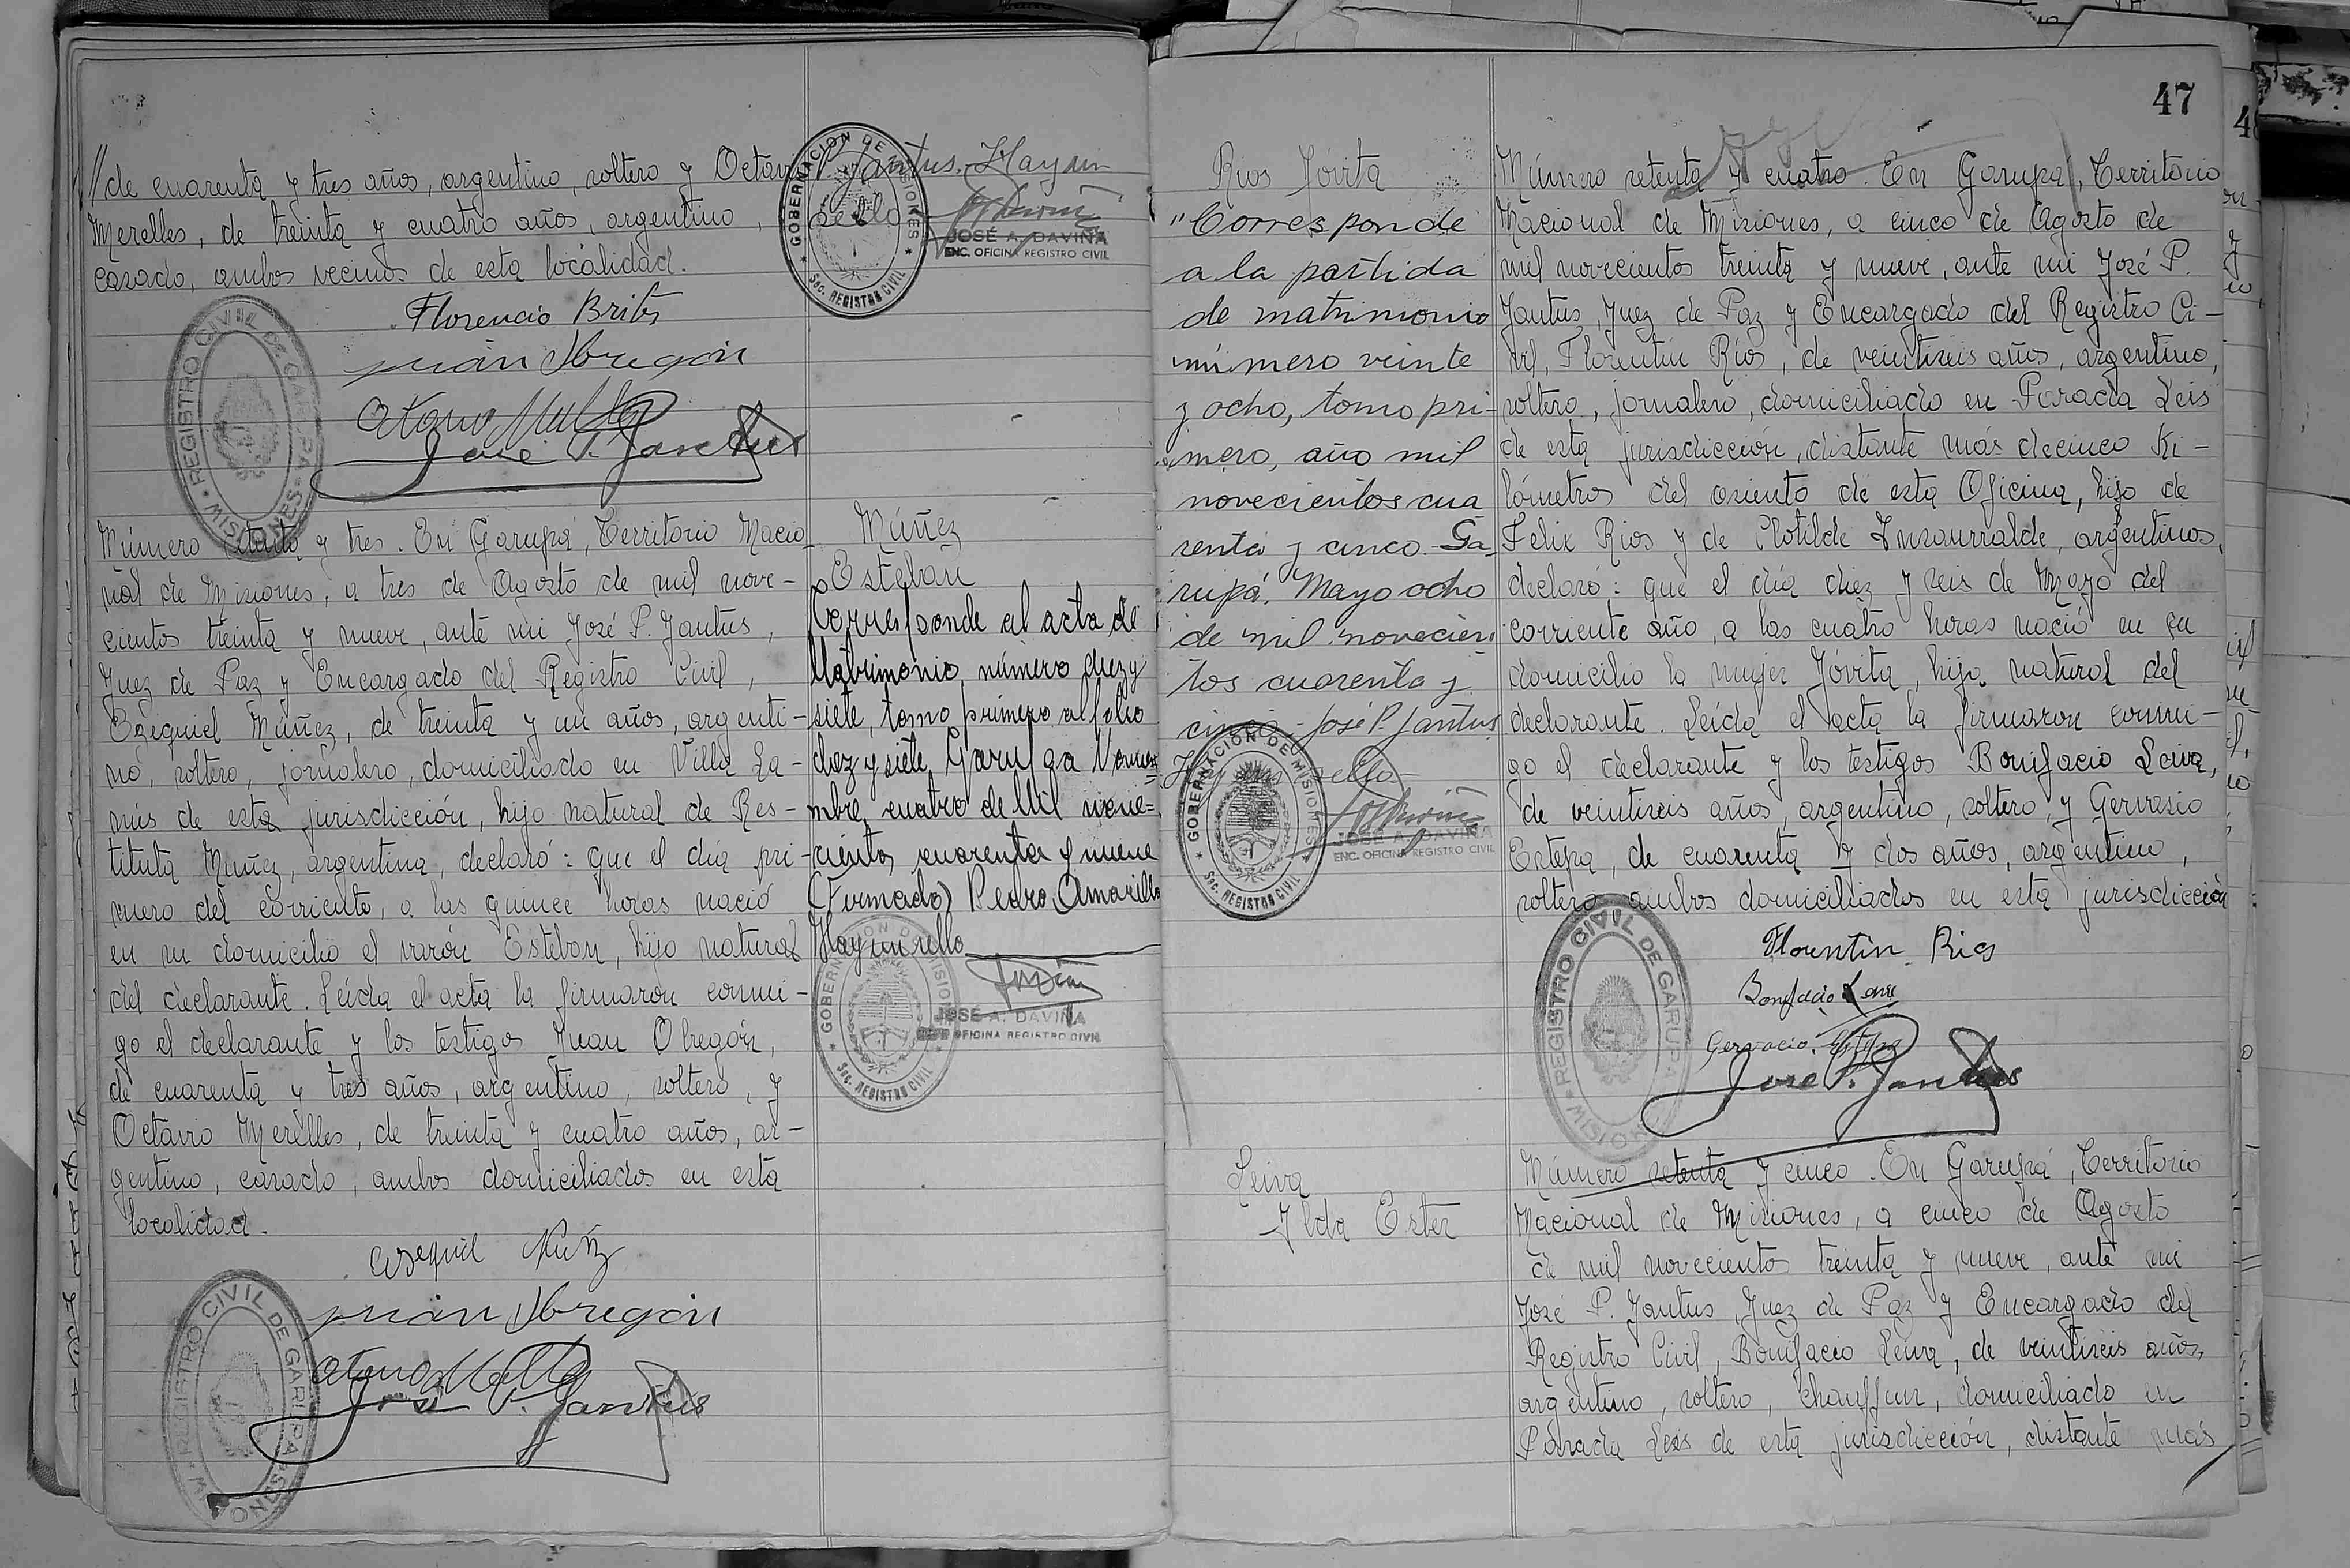 //de cuarenta y tres años, argentino, soltero y Octavio
Merelles, de treinta y cuatro años, argentino,
casado, ambos vecinos de esta localidad.
P. Jantus. Hay un
sello
GOBERNACION DE MISIONES
SEC. REGISTRO CIVIL
JOSÉ A. DAVIÑA
ENC. OFICINA REGISTRO CIVIL
Florencio Brites
Juan Obregón
José P. Jantus
REGISTRO CIVIL DE GARUPA
MISIONES
Número setenta y tres. En Garupá, Territorio Nacio-
nal de Misiones, a tres de Agosto de mil nove-
cientos treinta y nueve, ante mi José P. Jantus,
Juez de Paz y Encargado del Registro Civil,
Ezequiel Múñez, de treinta y un años, argenti-
no, soltero, jornalero, domiciliado en Villa La-
nús de esta jurisdicción, hijo natural de Res-
tituta Muñez, argentina, declaró: que el día pri-
mero del corriente, a las quince horas nació
en su domicilio el varón Esteban, hijo natural
del declarante. Leída el acta la firmaron conmi-
go el declarante y los testigos Juan Obregón,
de cuarenta y tres años, argentino, soltero, y
Octavio Merelles, de treinta y cuatro años, ar-
gentino, casado, ambos domiciliados en esta
localidad.
Múñez
Esteban
Corresponde al acta de
Matrimonio número diez y
siete, tomo primero al folio
diez y siete Garupa Noviem-
mbre cuatro de Mil nove=
cientos cuarenta y nueve
(Firmado) Pedro Amarilla
Hay un sello
GOBERNACION DE MISIONES
SEC. REGISTRO CIVIL
JOSÉ A. DAVIÑA
ENC. OFICINA REGISTRO CIVIL
Juan Obregón
José P. Jantus
REGISTRO CIVIL DE GARUPA
MISIONES
47
Rios Jóvita
"Corresponde
a la partida
de matrimonio
número veinte
y ocho, tomo pri-
mero, año mil
novecientos cua
renta y cinco. Ga-
rupá. Mayo ocho
de mil novecien
tos cuarenta y
cinco - José P. Jantus
Hay un sello
GOBERNACION DE MISIONES
SEC. REGISTRO CIVIL
JOSÉ A. DAVIÑA
ENC. OFICINA REGISTRO CIVIL
Número setenta y cuatro. En Garupá, Territorio
Nacional de Misiones, a cinco de Agosto de
mil novecientos treinta y nueve, ante mi José P.
Jantus, Juez de Paz y Encargado del Registro Ci-
vil, Florentín Ríos, de veintiseis años, argentino,
soltero, jornalero, domiciliado en Parada Leis
de esta jurisdicción, distante más de cinco Ki-
lómetros del asiento de esta Oficina, hijo de
Felix Rios y de Clotilde Insaurralde, argentinos,
declaró: que el día diez y seis de Mayo del
corriente año, a las cuatro horas nació en su
domicilio la mujer Jóvita, hija natural del
declarante. Leída el acta la firmaron conmi-
go el declarante y los testigos Bonifacio Leiva,
de veintiseis años, argentino, soltero, y Gervasio
Estepa, de cuarenta y dos años, argentino,
soltero ambos domiciliados en esta jurisdicción
Florentin Rios
Gervacio Estepa
José P. Jantus
REGISTRO CIVIL DE GARUPA
MISIONES
Leiva
Ilda Ester
Número setenta y cinco. En Garupá, Territorio
Nacional de Misiones, a cinco de Agosto
de mil novecientos treinta y nueve, ante mi
José P. Jantus, Juez de Paz y Encargado del
Registro Civil, Bonifacio Leiva, de veintiseis años,
argentino, soltero, chauffeur, domiciliado en
Parada Leis de esta jurisdicción, distante más